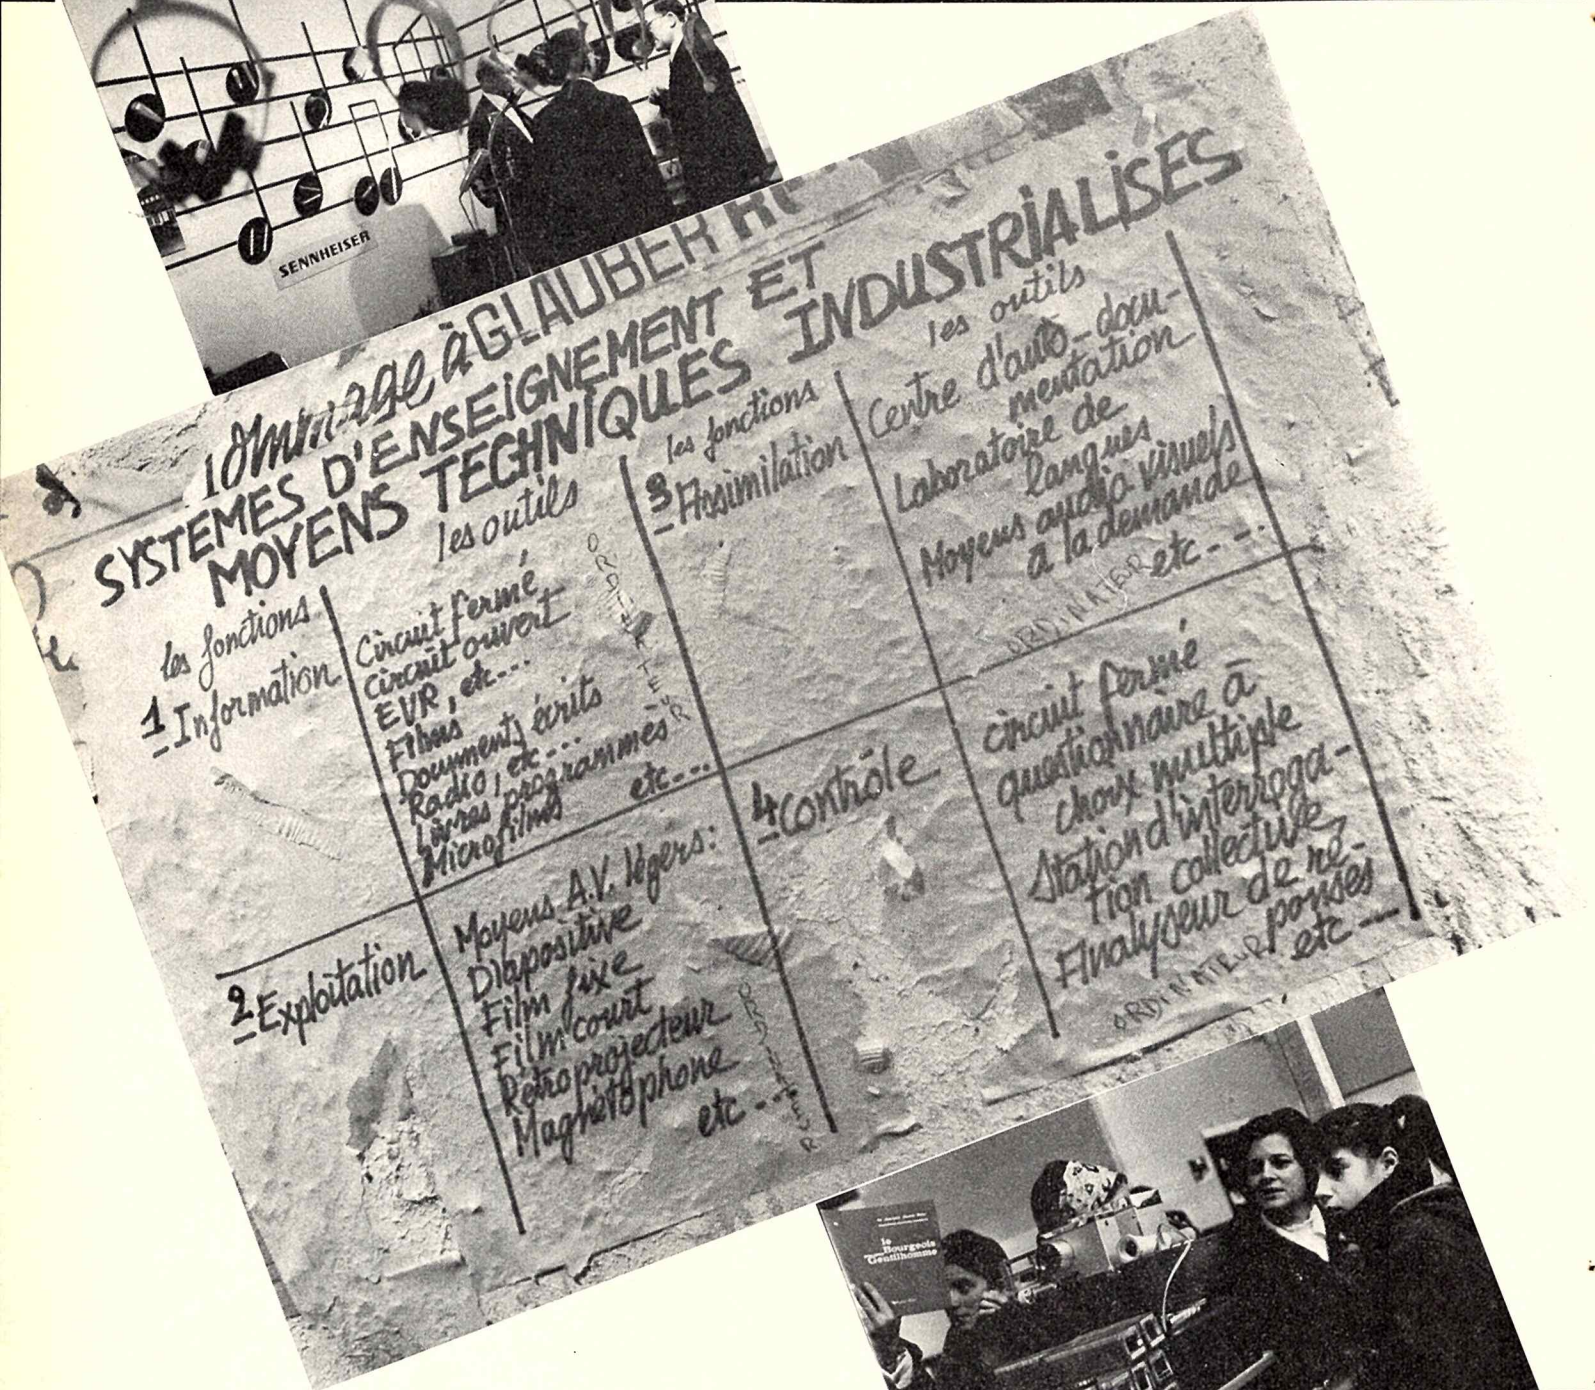 SENNHEISER
Hommage à GLAUBER
SYSTEMES D'ENSEIGNEMENT ET
MOYENS TECHNIQUES INDUSTRIALISES
les fonctions
1 Information
les outils
Circuit fermé
Circuit ouvert
EVR, etc...
Films
Documents écrits
Radio, etc...
Livres programmés
Microfilms etc...
ORDINATEUR
2 Exploitation
Moyens A.V. légers:
Diapositive
Film fixe
Film court
Rétroprojecteur
Magnétophone
etc...
ORDINATEUR
les fonctions
3 Assimilation
les outils
Centre d'auto-docu-
mentation
Laboratoire de
langues
Moyens audio visuels
à la demande
etc...
ORDINATEUR
4 Contrôle
circuit fermé
questionnaire à
choix multiple
Station d'interroga-
tion collective
Analyseur de ré-
ponses
etc...
ORDINATEUR
le
Bourgeois
Gentilhomme